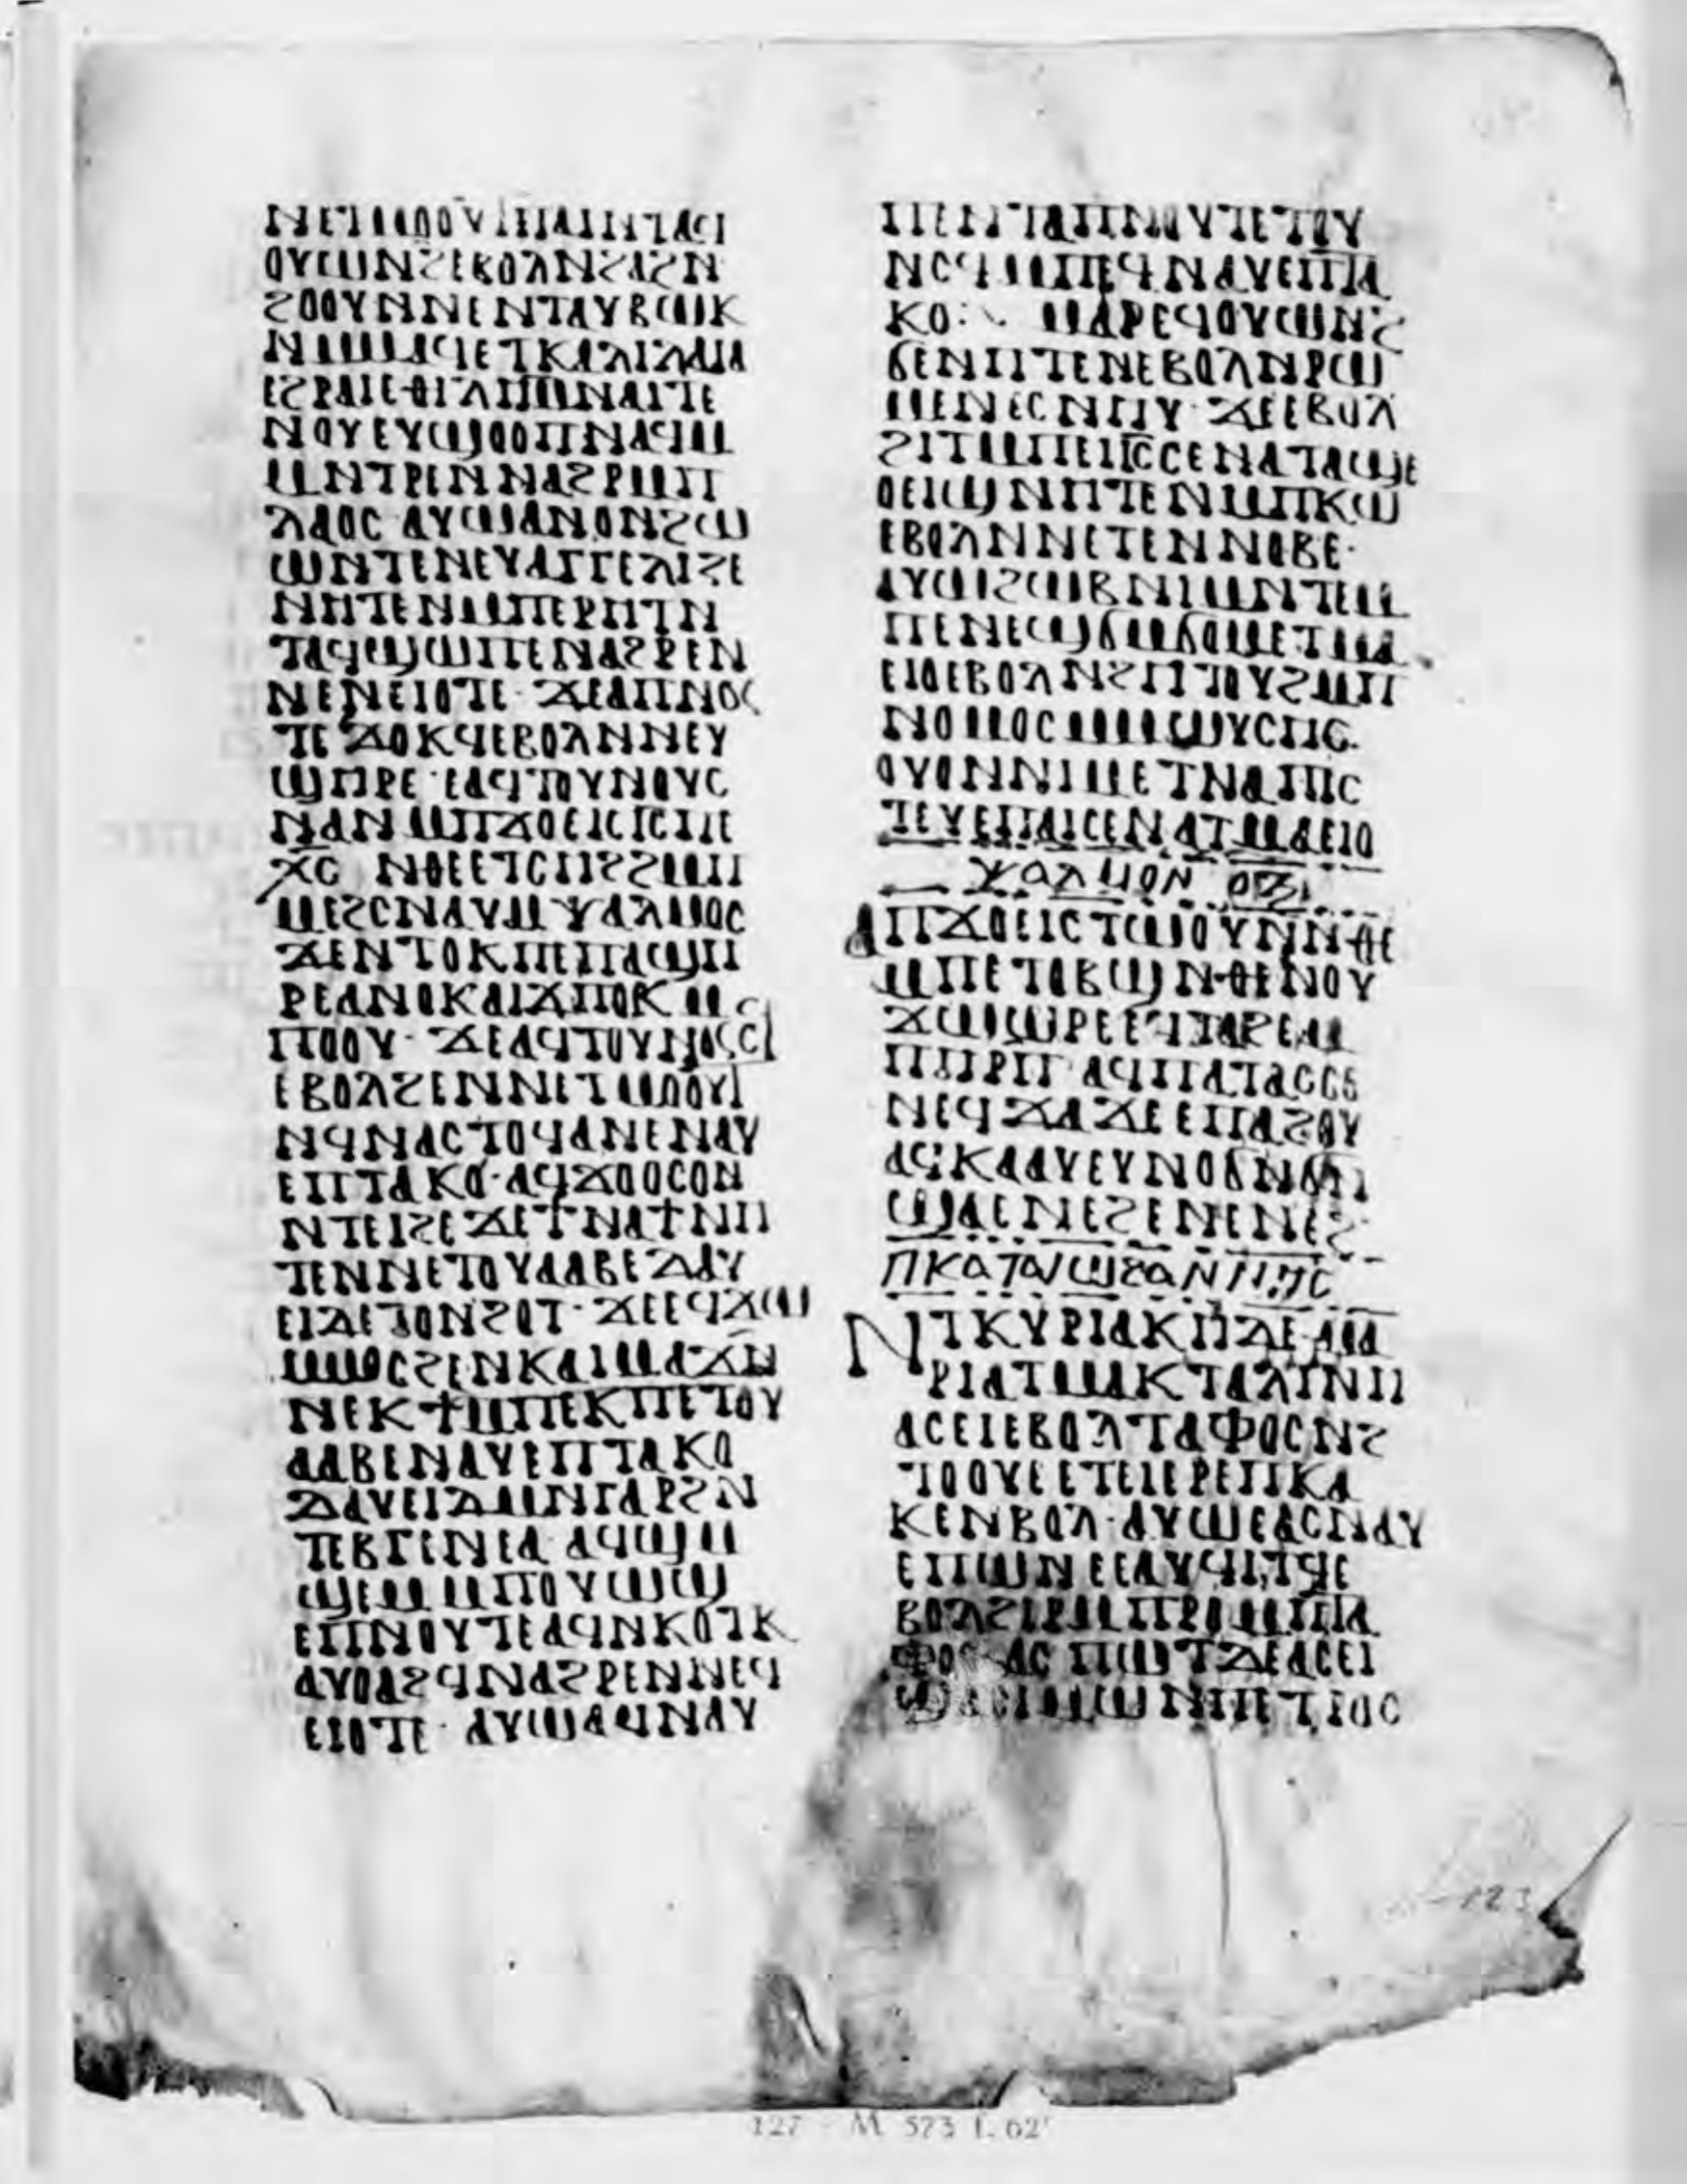 ⲛⲉⲧⲙⲟⲟⲩⲧⲡⲁⲓⲛⲧⲁϥ
ⲟⲩⲱⲛϩⲉⲃⲟⲗⲛϩⲁϩⲛ
ϩⲟⲟⲩⲛⲛⲉⲛⲧⲁⲩⲃⲱⲕ
ⲛⲙⲙⲁϥⲉⲧⲕⲁⲗⲓⲗⲁⲓⲁ
ⲉϩⲣⲁⲓⲉⲑⲓⲗⲏⲙⲛⲁⲓⲧⲉ
ⲛⲟⲩⲉⲩϣⲟⲟⲡⲛⲁϥⲙ
ⲙⲛⲧⲣⲉⲛⲛⲁϩⲣⲙⲡ
ⲗⲁⲟⲥ ⲁⲩⲱⲁⲛⲟⲛϩⲱ
ⲱⲛⲧⲉⲛⲉⲩⲁⲅⲅⲉⲗⲓⲍⲉ
ⲛⲏⲧⲉⲛⲙⲡⲉⲣⲏⲧⲛ
ⲧⲁϥϣⲱⲡⲉⲛⲁϩⲣⲉⲛ
ⲛⲉⲛⲉⲓⲟⲧⲉ· ϫⲉⲁⲡⲛⲟⲩ
ⲧⲉ ϫⲟⲕϥⲉⲃⲟⲗⲛⲛⲉⲩ
ϣⲏⲣⲉ·ⲉⲁϥⲧⲟⲩⲛⲟⲩⲥ
ⲛⲁⲛⲙⲡϫⲟⲉⲓⲥⲓⲥⲡⲉ
ⲭⲥ ⲛⲑⲉⲉⲧⲥⲏϩϩⲙⲡ
ⲙⲉϩⲥⲛⲁⲩⲙⲯⲁⲗⲙⲟⲥ
ϫⲉⲛⲧⲟⲕⲡⲉⲡⲁϣⲏ
ⲣⲉⲁⲛⲟⲕⲁⲓϫⲡⲟⲕ ⲙ
ⲡⲟⲟⲩ· ϫⲉⲁϥⲧⲟⲩⲛⲟⲥϥ
ⲉⲃⲟⲗϩⲉⲛⲛⲉⲧⲙⲟⲟⲩⲧ
ⲛϥⲛⲁⲥⲧⲟϥⲁⲛⲉⲛⲁⲩ
ⲉⲡⲧⲁⲕⲟ·ⲁϥϫⲟⲟⲥⲟⲛ
ⲛⲧⲉⲓϩⲉϫⲉϯⲛⲁϯⲛⲏ
ⲧⲉⲛⲛⲉⲧⲟⲩⲁⲁⲃⲉⲇⲁⲩ
ⲉⲓⲇⲉⲧⲟⲛϩⲟⲧ·ϫⲉⲉϥϫⲱ
ⲙⲙⲟⲥϩⲉⲛⲕⲁⲓⲙⲁϫⲛ
ⲛⲉⲕϯⲙⲡⲉⲕⲡⲉⲧⲟⲩ
ⲁⲁⲃⲉⲛⲁⲩⲉⲡⲧⲁⲕⲟ
ⲇⲁⲩⲉⲓⲇⲙⲛⲅⲁⲣϩⲛ
ⲧⲉⲃⲅⲉⲛⲉⲁ·ⲁϥϣⲙ
ϣⲉⲙⲙⲡⲟⲩⲱϣ
ⲉⲡⲛⲟⲩⲧⲉⲁϥⲛⲕⲟⲧⲕ
ⲁⲩⲟⲁϩϥⲛⲁϩⲣⲉⲛⲛⲉϥ
ⲉⲓⲟⲧⲉ· ⲁⲩⲱⲁϥⲛⲁⲩ
ⲡⲉⲛⲧⲁⲡⲛⲟⲩⲧⲉⲧⲟⲩ
ⲛⲥϥⲙⲡⲉϥⲛⲁⲩⲉⲡⲧⲁ
ⲕⲟ: ⲙⲁⲣⲉϥⲟⲩⲱⲛϩ
ϭⲉⲛⲏⲧⲉⲛⲉⲃⲟⲗⲛⲣⲱ
ⲙⲉⲛⲉⲥⲛⲏⲩ· ϫⲉⲉⲃⲟⲗ
ϩⲓⲧⲙⲡⲉⲓⲓⲥⲥⲉⲛⲁⲧⲁϣⲉ
ⲟⲉⲓϣⲛⲏⲧⲉⲛⲙⲡⲕⲱ
ⲉⲃⲟⲗⲛⲛⲉⲧⲉⲛⲛⲟⲃⲉ·
ⲁⲩⲱϩⲱⲃⲛⲓⲙⲛⲧⲉⲙ
ⲡⲉⲛⲉϣϭⲙϭⲟⲙⲉⲧⲙⲁ
ⲉⲓⲟⲉⲃⲟⲗⲛϩⲏⲧⲟⲩϩⲙⲡ
ⲛⲟⲙⲟⲥⲙⲙⲱⲩⲥⲏⲥ.
ⲟⲩⲟⲛⲛⲓⲙⲉⲧⲛⲁⲡⲓⲥ
ⲧⲉⲩⲉⲡⲁⲓⲥⲉⲛⲁⲧⲙⲁⲉⲓⲟ
ⲯⲁⲗⲙⲟⲛ ⲟⲍ
ⲁⲡϫⲟⲉⲓⲥⲧⲱⲟⲩⲛⲛⲑⲉ
ⲙⲡⲉⲧⲟⲃϣⲛⲑⲉⲛⲟⲩ
ϫⲱⲱⲣⲉⲉϥⲧⲁϩⲉⲙ
ⲡⲏⲣⲡ ⲁϥⲡⲁⲧⲁⲥⲥⲉ
ⲛⲉϥϫⲁϫⲉⲉⲡⲁϩⲟⲩ
ⲁϥⲕⲁⲁⲩⲉⲩⲛⲟϭⲛϭⲛ
ϣⲁⲉⲛⲉϩⲉⲛⲉⲛⲉϩ·
ⲡⲕⲁⲧⲁⲓⲱϩⲁⲛⲛⲏⲥ
ⲛⲧⲕⲩⲣⲓⲁⲕⲏⲇⲉⲙⲁ
ⲣⲓⲁⲧⲙⲁⲕⲧⲁⲗⲓⲛⲏ
ⲁⲥⲉⲓⲉⲃⲟⲗⲧⲁⲫⲟⲥⲛϩ
ⲧⲟⲟⲩⲉⲉⲧⲉⲓⲉⲣⲉⲡⲕⲁ
ⲕⲉⲛⲃⲟⲗ·ⲁⲩⲱⲉⲁⲥⲛⲁⲩ
ⲉⲡⲱⲛⲉⲉⲁⲩϥⲓⲧϥⲉ
ⲃⲟⲗϩⲓⲣⲙⲡⲣⲟⲙⲡⲧⲁ
ⲫⲟⲥ ⲁⲥ ⲡⲱⲧⲇⲉⲁⲥⲉⲓ
ϣⲁⲥⲓⲙⲱⲛⲡⲉⲧⲣⲟⲥ